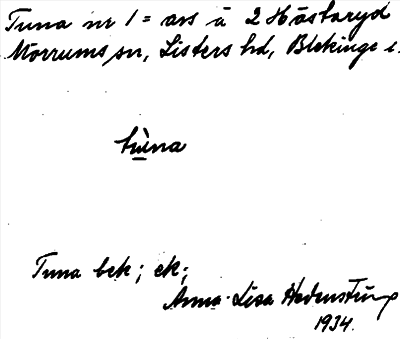 Tuna nr 1 = ars å 2 Hästaryd
Mörrums sn, Listers hd, Blekinge l.
tùna
Tuna bek; ek;
Anna-Lisa Hedenstierna
1934.